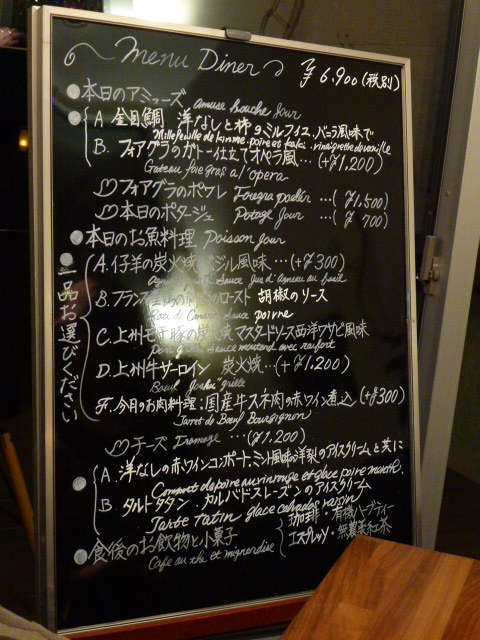 Menu Diner ¥6.900(税別)
本日のアミューズ amuse bouche Jour
A. 金目鯛 洋なしと柿のミルフィユ、バニラ風味で
Millefeuille de kinme. poire et kaki. vinaigrette de vanille
B. フォアグラのガトー仕立てオペラ風…(+¥1,200)
Gateau foie gras a l'opera
フォアグラのポワレ Foiegra poeler …(¥1,500)
本日のポタージュ Potage Jour …(¥ 700)
本日のお魚料理 Poisson Jour
一品お選びください
A. 仔羊の炭火焼 バジル風味…(+¥300)
Sauce Jus d'Agneau au basil
B. フランス のロースト 胡椒のソース
Roti de Canard Sauce poivre
C. 上州 豚の炭火焼 マスタードソース西洋ワサビ風味
sauce moutard avec raifort
D. 上州牛サーロイン 炭火焼…(+¥1,200)
Boeuf Joshu grille
F. 今日のお肉料理:国産牛スネ肉の赤ワイン煮込(+¥300)
Jarret de Boeuf Bourguignon
チーズ Fromage …(¥1,200)
A. 洋なしの赤ワインコンポート、ミント風味の洋梨のアイスクリームと共に
Compout de poire au vin rouge et glace poire menthe.
B. タルトタタン、カルバドスレーズンのアイスクリーム
Tarte Tatin glace calvados raisin
食後のお飲物と小菓子
Cafe ou the et mignardise
珈琲・有機ハーブティー
エスプレッソ・無農薬紅茶